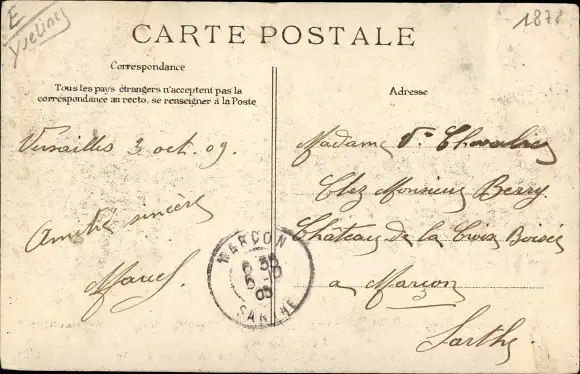 E
Yvelines
1878
CARTE POSTALE
Correspondance
Tous les pays étrangers n'acceptent pas la
correspondance au recto. se renseigner à la Poste
Versailles 3 oct. 09.
Amitié sincère
Marcel
Adresse
Madame Vve Chevalier
Chez Monsieur Berry
Château de la Croix Boisée
a Marçon
Sarthe
MARÇON
SARTHE